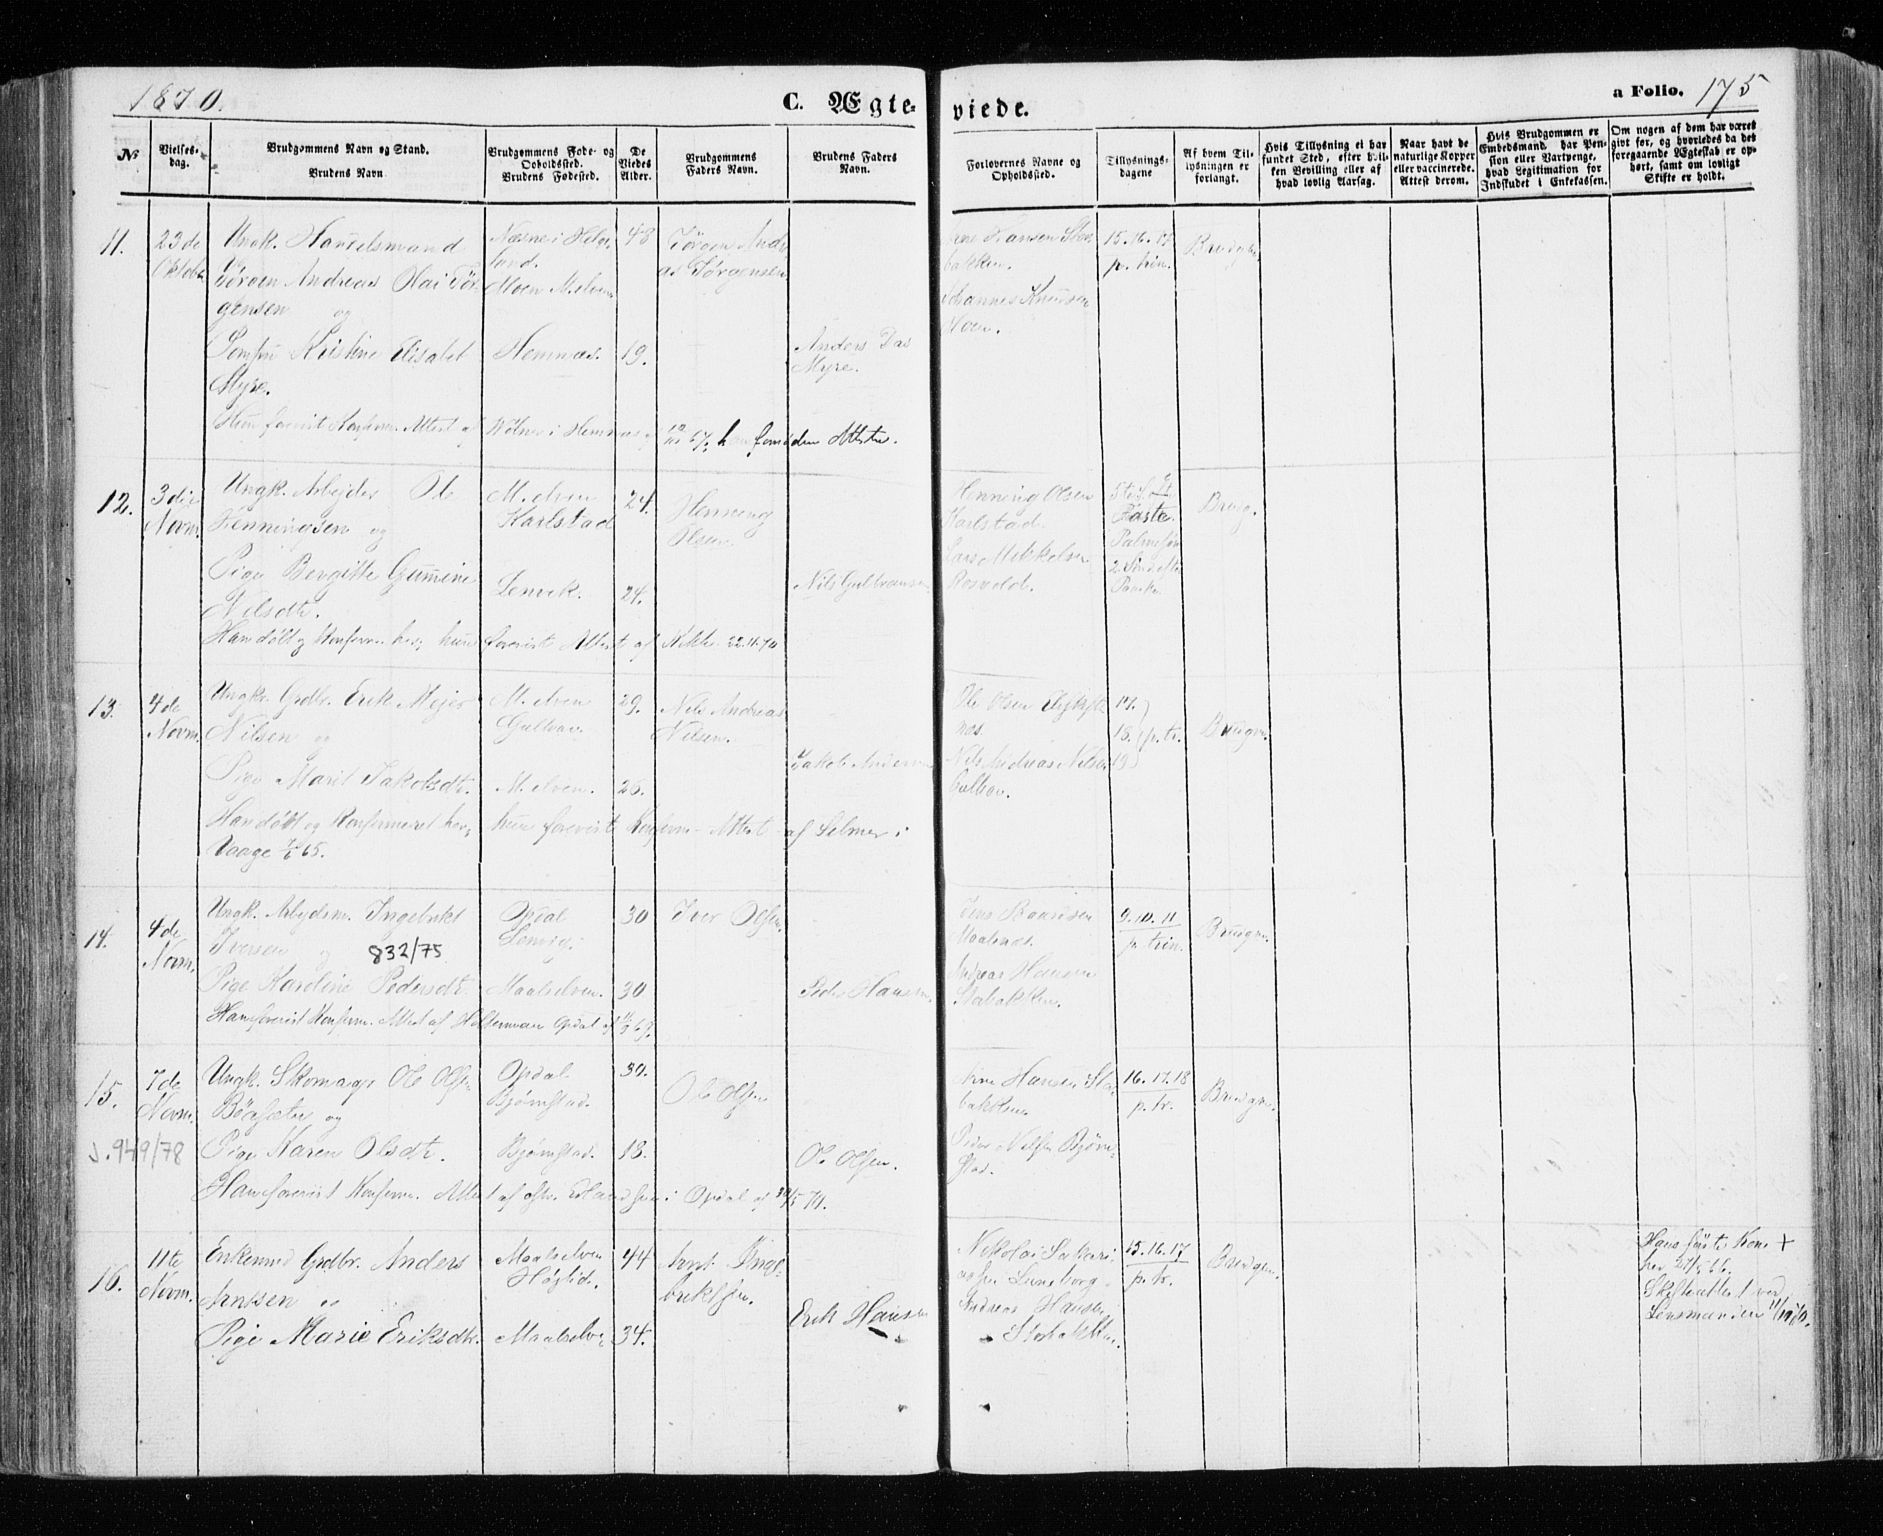 1870.
C. Ægte-
viede.
a Folio. 175
No
Vielses-
dag.
Brudgommens Navn og Stand.
Brudens Navn
Brudgommens Føde- og
Opholdssted.
Brudens Fødested.
De
Viedes
Alder.
Brudgommens
Faders Navn.
Brudens Faders
Navn.
Forlovernes Navne og
Opholdssted.
Tillysnings-
dagene
Af hvem Til-
lysningen er
forlangt.
Hvis Tillysning ei har
fundet Sted, efter hvil-
ken Bevilling eller af
hvad lovlig Aarsag.
Naar havt de
naturlige Kopper
eller vaccinerede.
Attest derom.
Hvis Brudgommen er
Embedsmand, har Pen-
sion eller Vartpenge,
hvad Legitimation for
Indskudet i Enkekassen.
Om nogen af dem har været
gift før, og hvorledes da det
foregaaende Ægteskab er op-
hørt, samt om lovligt
Skifte er holdt.
11.
23de
Oktober
Ungk. Handelsmand
Jørgen Andreas Olai Jør-
gensen og
Jomfru Kristine Elisabet
Myre.
Næsne i Helge-
land.
Moen M.elven
Hemnæs.
48
19.
Jørgen Andre-
as Jørgensen
Anders Das
Myre.
Hansen Sta-
bakken.
Johannes Knudsen
Moen.
15. 16. 17.
p. trin.
Brudgm.
Hun forevist Konferm. Attest af i Hemnæs 67, han foruden Attester.
12.
3die
Novm.
Ungk. Arbejder Ole
Henningsen og
Pige Bergitte Gumine
Nilsdtr.
M.elven
Karlstad
Lenvik.
24.
24.
Henning
Olsen.
Nils Gulbransen
Henning Olsen
Karlstad.
Lars Mikkelsen
Rosvold.
5te S. i
Faste.
Palmesøn
2. Sønd. efter
Paaske
Brudg.
Han døbt og Konferm. her; hun forevist Attest af 22.4.70
13.
4de
Novm.
Ungk. Grdbr. Erik Mejer
Nilsen og
Pige Marit Jakobsdtr.
M.elven
Gulhav.
M.elven.
29.
26.
Nils Andreas
Nilsen.
Jakob Andersen
Ole Olsen
næs
Nils Andreas Nilsen
Gulhav.
17.
18. p. tr.
19
Brudgm.
Han døbt og Konfermeret her; hun forevist Konferm. Attest af Selmer i
Vaage 65.
14.
4de
Novm.
Ungk. Arbejdsm. Ingebrikt
Iversen og
832/75
Pige Karoline Pedersdtr.
Opdal
Lenvig.
Maalselven.
30
30
Iver Olsen.
Peder Hansen.
Jens Baardsen
Maalsnæs.
Andreas Hansen
Stabakken.
9. 10. 11
p. trin.
Brudgm.
Han forevist Konferm. Attest af Holterman Opdal af 69.
15.
7de
Novm.
J. 949/78
Ungk. Skomager Ole Olsen
Bøasæter og
Pige Karen Olsdtr.
Opdal
Bjørnstad.
Bjørnstad.
30.
18.
Ole Olsen
Ole Olsen.
Hansen Sta-
bakken
Peder Nilsen Bjørn-
stad.
16. 17. 18
p. tr.
Brudgm.
Han forevist Konferm. Attest af i Opdal af 30/5 70.
16.
11te
Novm.
Enkemand Grdbr. Anders
Arntsen og
Pige Marie Eriksdtr.
Maalselven
Høglid.
Maalselven
44
34.
Arnt Inge-
briktsen.
Erik Hansen
Nikolai Sakari-
assen Luneborg.
Andreas Hansen
Stabakken.
15. 16. 17
p. tr.
Brudgm.
Hans første Kone +
her
Skifteattest ved
Lensmanden